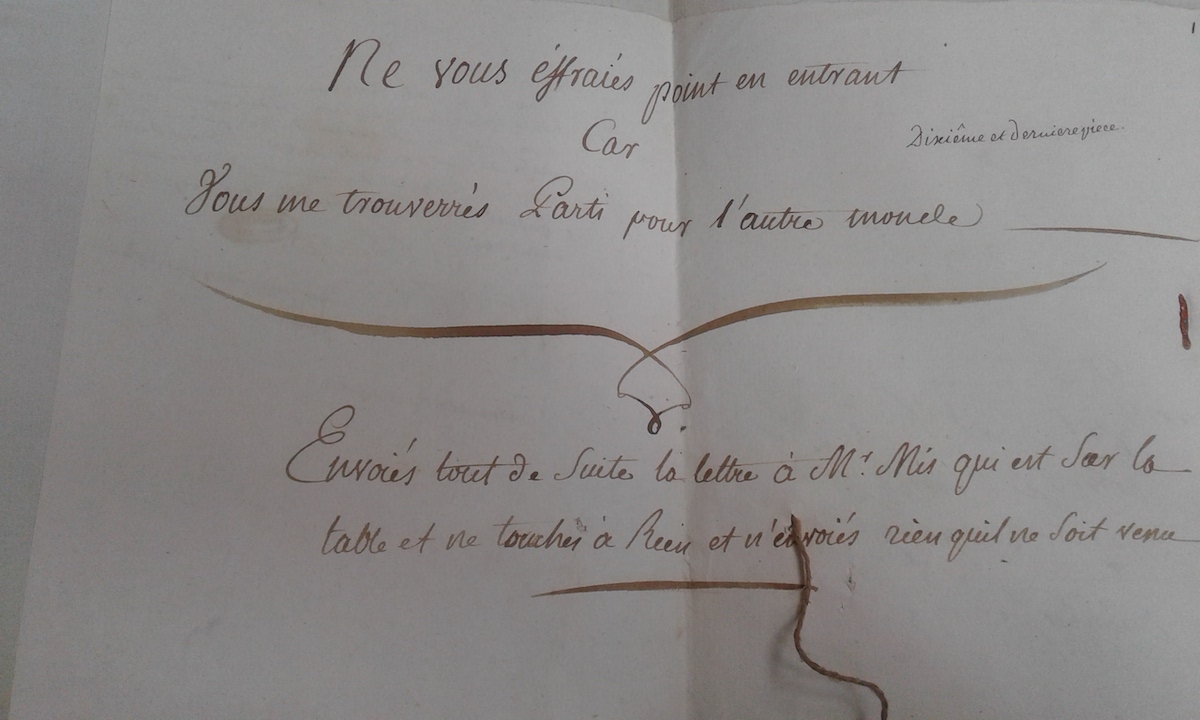 Ne vous éffraiés point en entrant
Car
Dixiême et derniere piece.
Vous me trouverrés Parti pour l'autre monde
Envoiés tout de Suite la lettre à Mr. Mis qui est Sur la
table et ne touchés à Rien et n'envoiés rien quil ne Soit venu